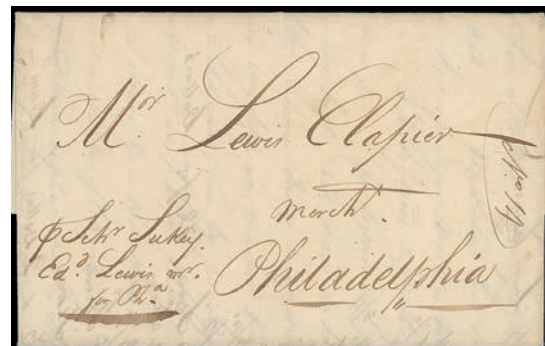 Mor. Lewis Clapier
Mercht.
Philadelphia
Schr Sukey.
Edd. Lewis mr.
for